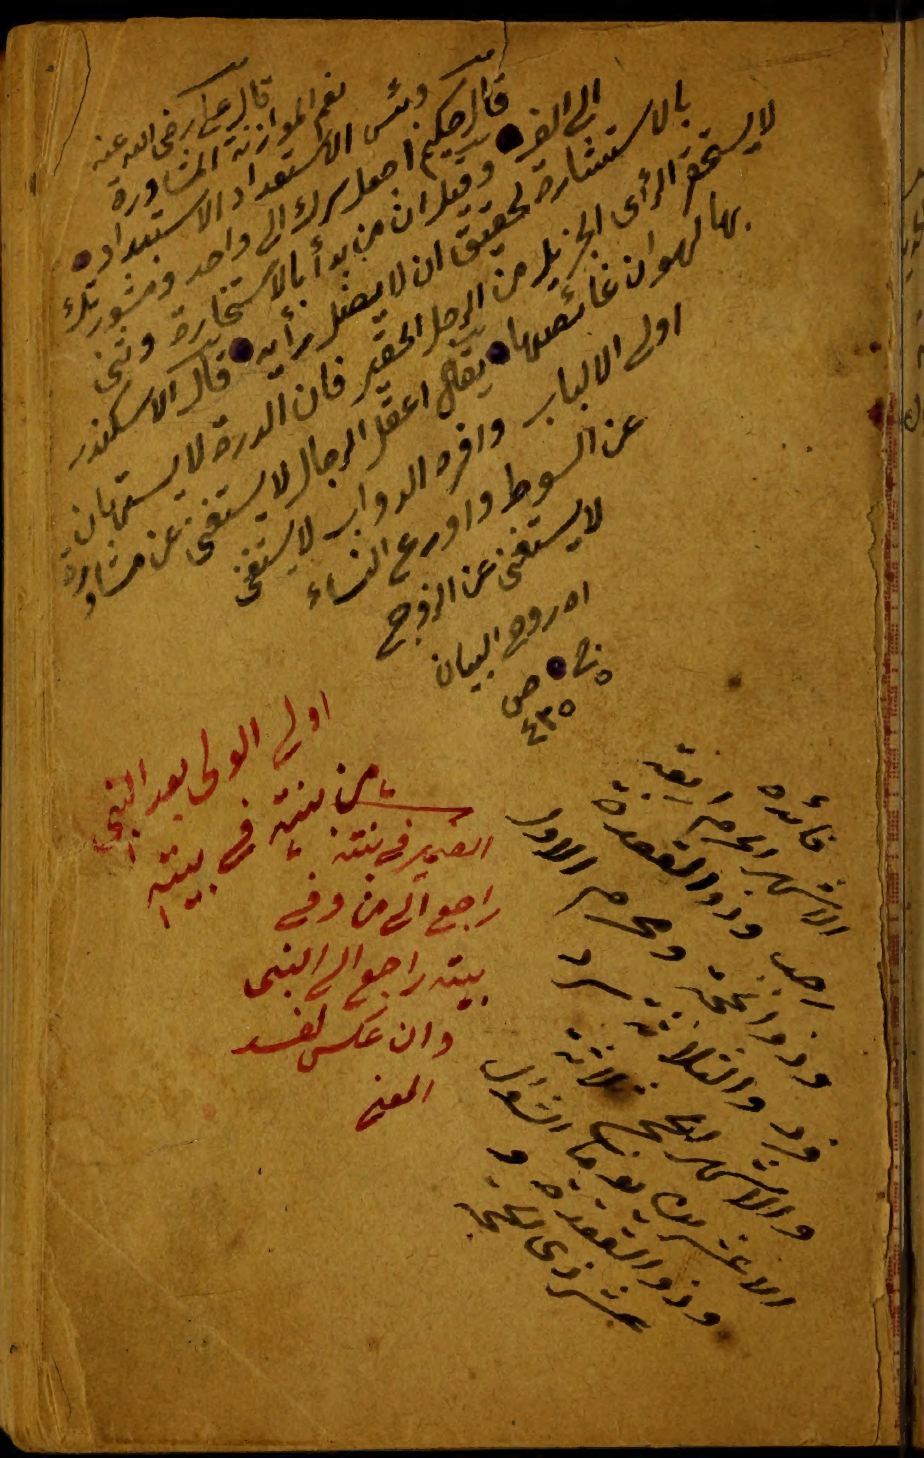 قال علي رضي الله عنه
نعم الموازنة المشاورة
وبئس الاستعداد الاستبداد
قال حكيم اجعل سرك الى واحد ومشورتك
الى الف وقيل ان من بدأ بالاستخارة وثنى
بالاستشارة لحقيق ان لا يضل رأيه قال الاسكندر
لا يستحقر الرأى الجزيل من الرجل الحقير فان الدرة لا يستهان
بها لهوان غائصها يقال اعقل الرجال لا يستغنى عن مشاورة
اولى الالباب وافره الدواب لا يستغنى
عن السوط واورع النساء
لا يستغنى عن الزوج
اه روح البيان
ج ٥ ص
٤٣٥
اولى الولى بعد النبى
من بنته فى بيته
الضمير فى بنته
راجع الى من وفى
بيته راجع الى النبى
وان عكس لفسد
المعنى
فائده
الاشهر الحرم اربعة
رجب وذو القعدة
وذو الحجة ومحرم الاول
فرد والثلاثة سرد
والاشهر للحج ثلاثة
الاعشرين يوما الشوال
وذو القعده و
عشر ذى الحجة